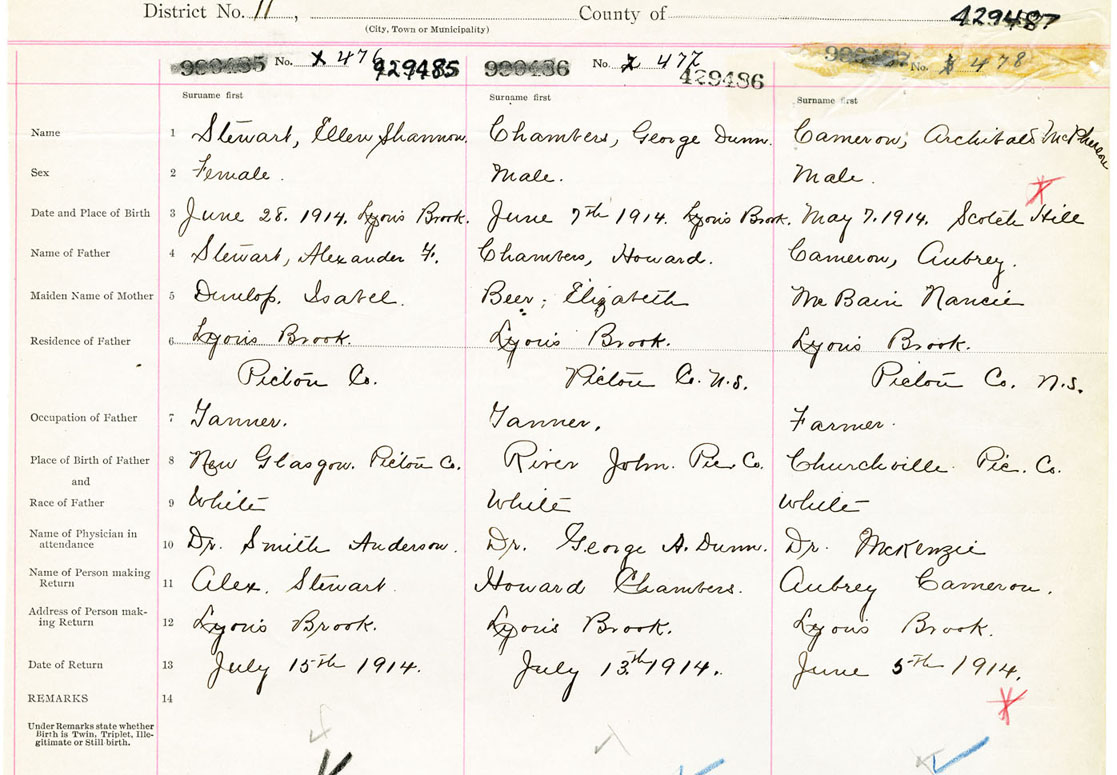 District No. 11, County of 429487
(City, Town or Municipality)
No. 476 429485 No. 477 429486 No. 478
Surname first Surname first Surname first
Name 1 Stewart, Ellen Shannon. Chambers, George Dunn. Cameron, Archibald McPherson
Sex 2 Female. Male. Male.
Date and Place of Birth 3 June 28. 1914. Lyons Brook. June 7th 1914. Lyons Brook. May 7. 1914. Scotch Hill
Name of Father 4 Stewart, Alexander F. Chambers, Howard. Cameron, Aubrey.
Maiden Name of Mother 5 Dunlop. Isabel. Beer, Elizabeth McBain Nancie
Residence of Father 6 Lyons Brook. Lyons Brook. Lyons Brook.
Pictou Co. Pictou Co. N.S. Pictou Co. N.S.
Occupation of Father 7 Tanner. Tanner. Farmer.
Place of Birth of Father 8 New Glasgow. Pictou Co. River John. Pic. Co. Churchville Pic. Co.
and
Race of Father 9 White White White
Name of Physician in
attendance 10 Dr. Smith Anderson. Dr. George A. Dunn. Dr. McKenzie
Name of Person making
Return 11 Alex. Stewart Howard Chambers. Aubrey Cameron.
Address of Person mak-
ing Return 12 Lyons Brook. Lyons Brook. Lyons Brook.
Date of Return 13 July 15th 1914. July 13th 1914. June 5th 1914.
REMARKS 14
Under Remarks state whether
Birth is Twin, Triplet, Ille-
gitimate or Still birth.